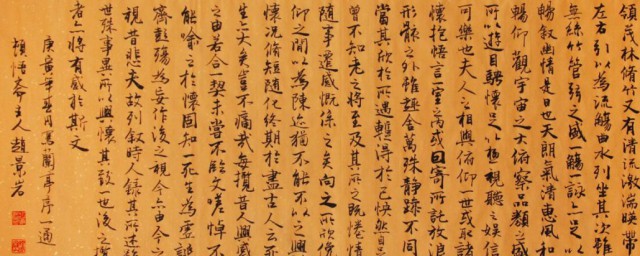 領茂林修竹又有清流激湍暎帶
左右引以為流觴曲水列坐其次雖
無絲竹管弦之盛一觴一詠亦足以
暢叙幽情是日也天朗氣清惠風和
暢仰觀宇宙之大俯察品類之盛
所以遊目騁懷足以極視聽之娛信
可樂也夫人之相與俯仰一世或取諸
懷抱悟言一室之內或因寄所託放浪
形骸之外雖趣舍萬殊靜躁不同
當其欣於所遇暫得於己快然自足
曾不知老之將至及其所之既惓情
隨事遷感慨係之矣向之所欣俛
仰之間以為陳迹猶不能不以之興
懷況修短隨化終期於盡古人云死
生亦大矣豈不痛哉每攬昔人興感
之由若合一契未嘗不臨文嗟悼不
能喻之於懷固知一死生為虛誕
齊彭殤為妄作後之視今亦由今之
視昔悲夫故列叙時人錄其所述雖
世殊事異所以興懷其致一也後之攬
者亦將有感於斯文
庚寅年月寫蘭亭序一通
頓悟齋主人趙景岩